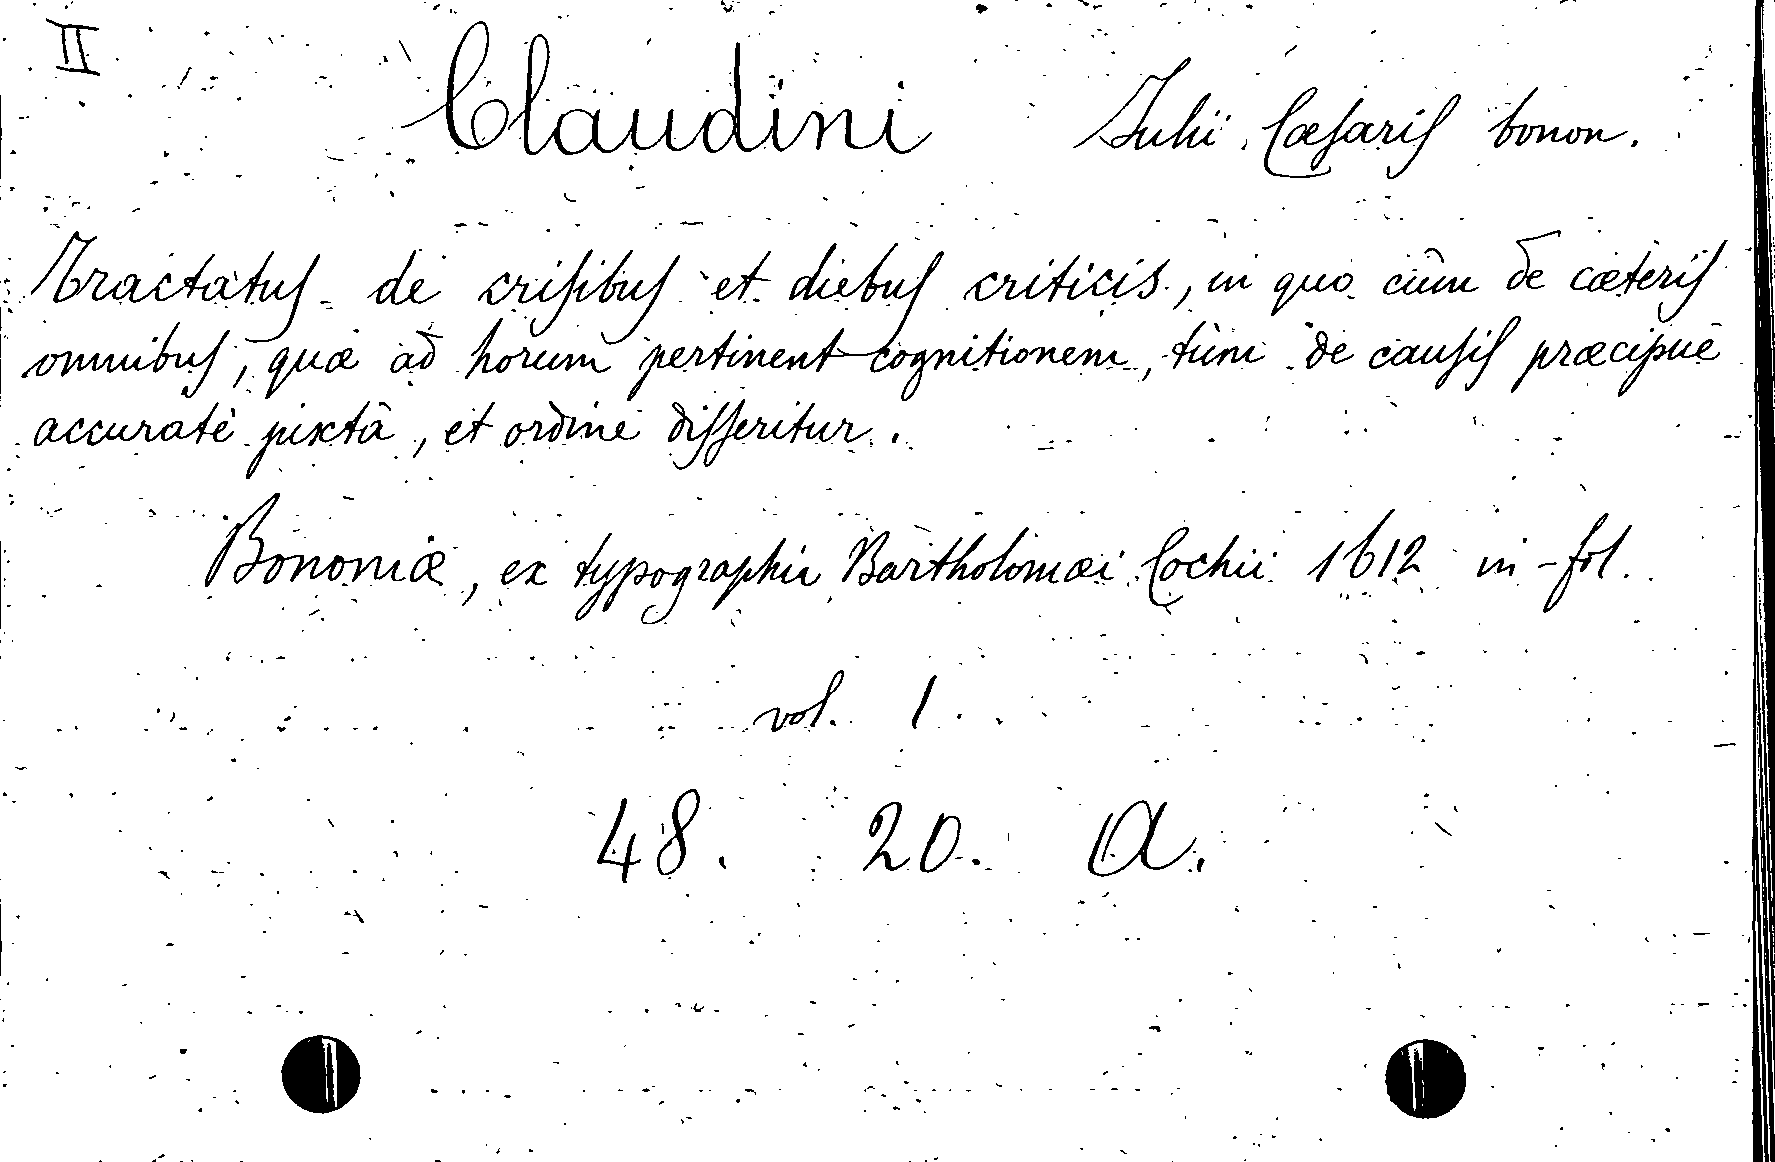 II
Claudini Julii Cæsaris bonon.
Tractatus de crisibus et diebus criticis, in quo cùm de cæteris
omnibus, quæ ad horum pertinent cognitionem, tùm de causis præcipuè
accuratè juxtà, et ordine disseritur.
Bononiæ, ex typographia Bartholomæi Cochii 1612 in-fol.
vol. 1.
48. 20. A.